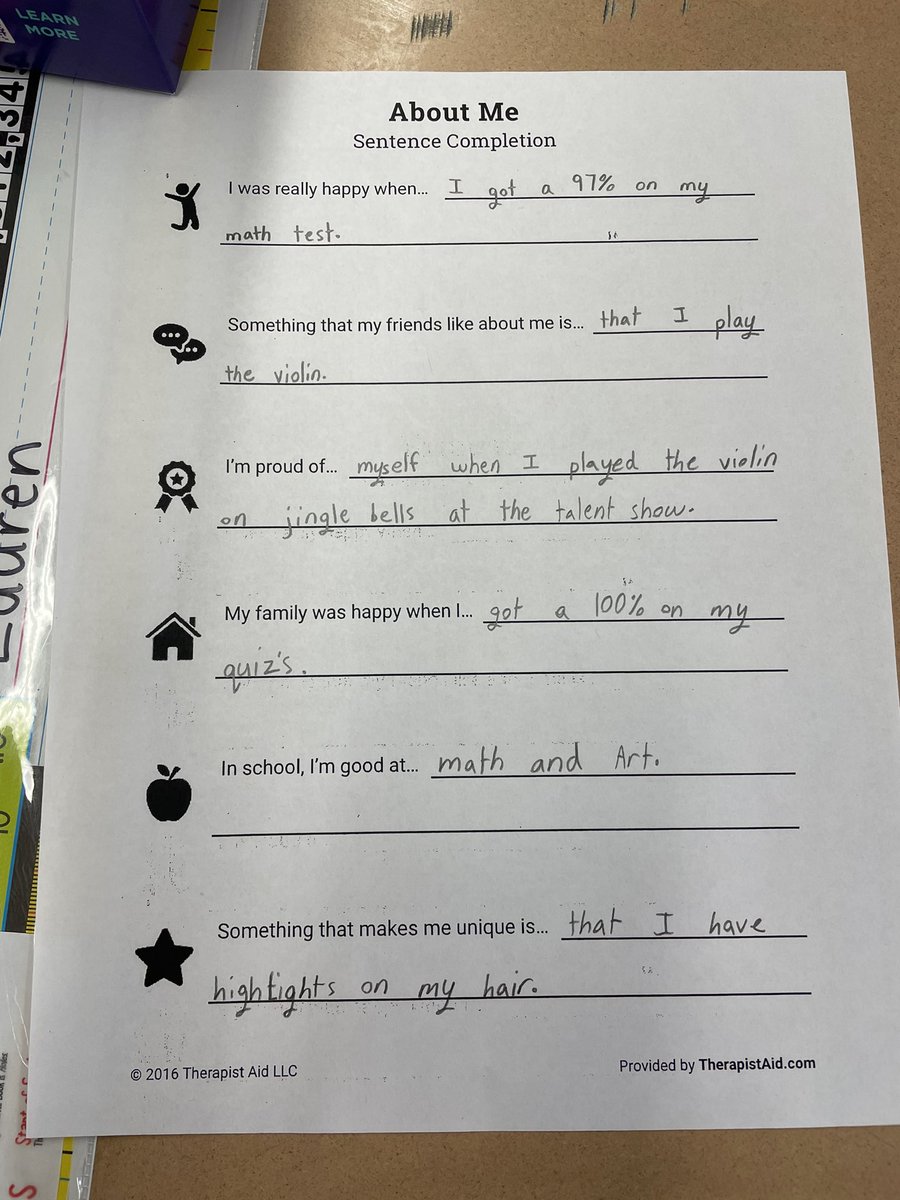 LEARN
MORE
Lauren
About Me
Sentence Completion
I was really happy when... I got a 97% on my
math test.
Something that my friends like about me is... that I play
the violin.
I'm proud of... myself when I played the violin
on jingle bells at the talent show.
My family was happy when I... got a 100% on my
quiz's.
In school, I'm good at... math and Art.
Something that makes me unique is... that I have
hightights on my hair.
© 2016 Therapist Aid LLC
Provided by TherapistAid.com